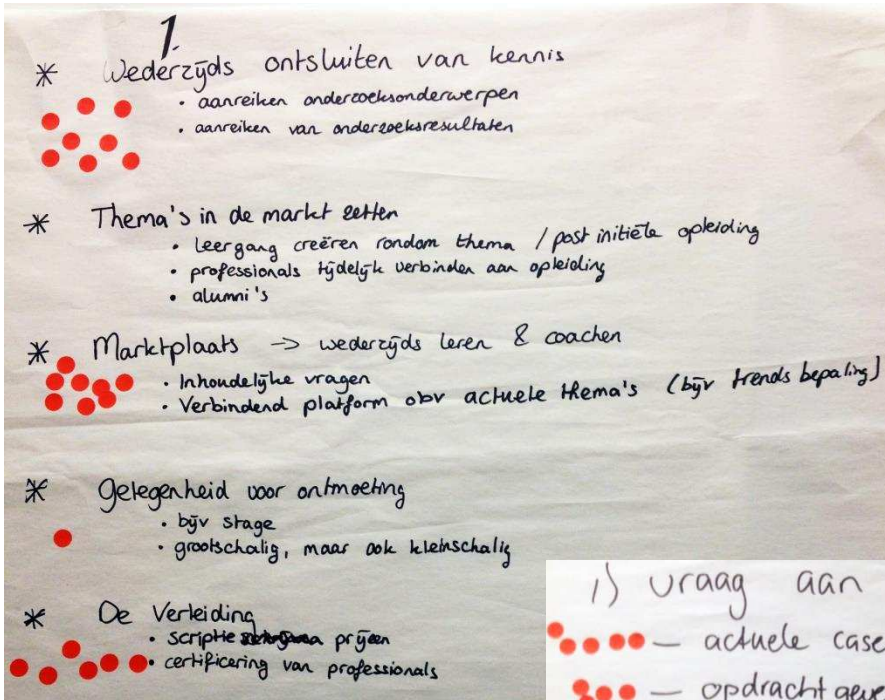 1.
* Wederzijds ontsluiten van kennis
• aanreiken onderzoeksonderwerpen
• aanreiken van onderzoeksresultaten
* Thema's in de markt zetten
• leergang creëren rondom thema / post initiële opleiding
• professionals tijdelijk verbinden aan opleiding
• alumni's
* Marktplaats -> wederzijds leren & coachen
• Inhoudelijke vragen
• Verbindend platform obv actuele thema's (bijv trends bepaling)
* Gelegenheid voor ontmoeting
• bijv stage
• grootschalig, maar ook kleinschalig
* De Verleiding
• scriptie prijzen
• certificering van professionals
1) vraag aan
— actuele case
— opdracht